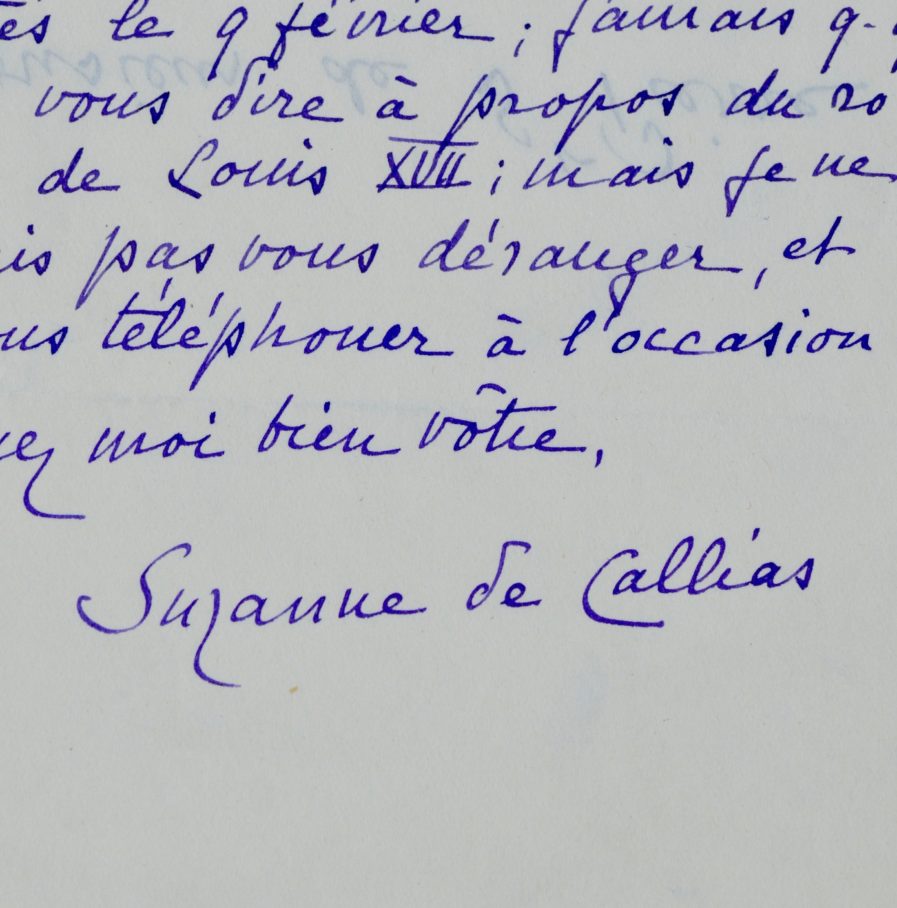 és le 9 février ; j'aurais q.
vous dire à propos du ro
de Louis XVII ; mais je ne
is pas vous déranger, et
ous téléphoner à l'occasion
ez moi bien vôtre,
Suzanne de Callias